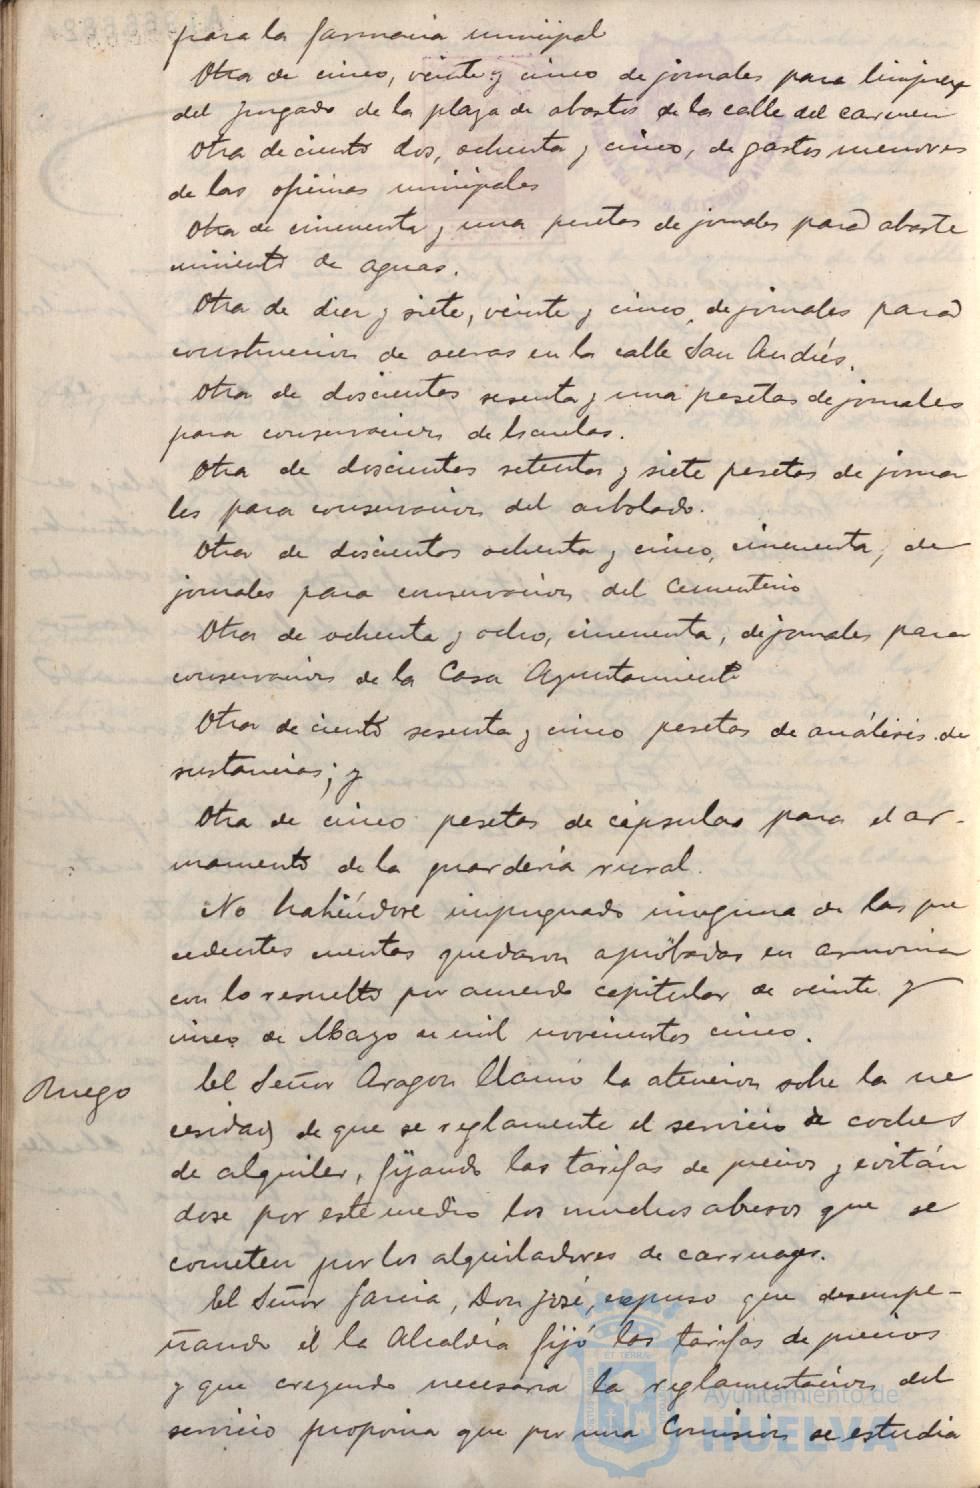 para la farmacia municipal
Otra de cinco, veinte y cinco de jornales para limpieza
del juzgado de la plaza de abastos de la calle del carmen
Otra de ciento dos, ochenta y cinco, de gastos menores
de las oficinas municipales
Otra de cincuenta y una pesetas de jornales para abaste
cimiento de aguas.
Otra de diez y siete, veinte y cinco, de jornales para
construccion de aceras en la calle San Andrés.
Otra de doscientas sesenta y una pesetas de jornales
para conservacion de Escuelas.
Otra de doscientas setenta y siete pesetas de jorna
les para conservacion del arbolado.
Otra de doscientas ochenta y cinco, cincuenta, de
jornales para conservacion del Cementerio
Otra de ochenta y ocho, cincuenta, de jornales para
conservacion de la Casa Ayuntamiento
Otra de ciento sesenta y cinco pesetas de análisis de
sustancias; y
Otra de cinco pesetas de cápsulas para el ar-
mamento de la guardería rural.
No habiéndose impugnado ninguna de las pre
cedentes cuentas quedaron aprobadas en armonia
con lo resuelto por acuerdo capitular de veinte y
cinco de Mayo de mil novecientos cinco.
Ruego
El Señor Aragon llamó la atencion sobre la ne
cesidad de que se reglamente el servicio de coches
de alquiler, fijando las tarifas de precios y evitán
dose por este medio los muchos abusos que se
cometen por los alquiladores de carruages.
El Señor Garcia, Don José, expuso que desempe-
ñando él la Alcaldía fijó las tarifas de precios
y que creyendo necesaria la reglamentacion del
servicio proponia que por una Comision se estudia
Ayuntamiento de
HUELVA